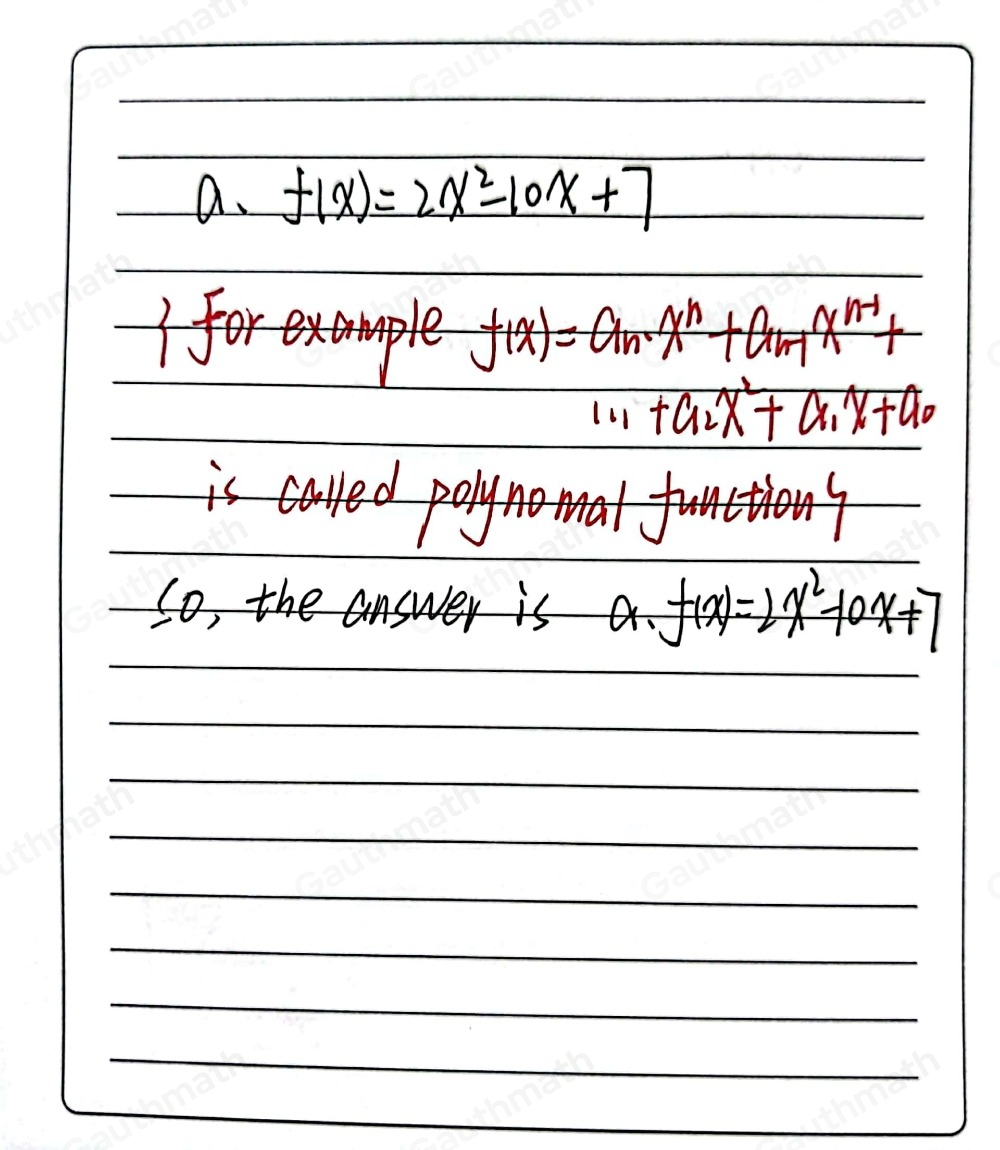 a、f(x)=2x²-10x+7
{ for example f(x)=aₙ·xⁿ+aₙ₋₁xⁿ⁻¹+
...+a₂x²+a₁x+a₀
is called polynomal function}
so, the answer is a、f(x)=2x²-10x+7
Gauthmath